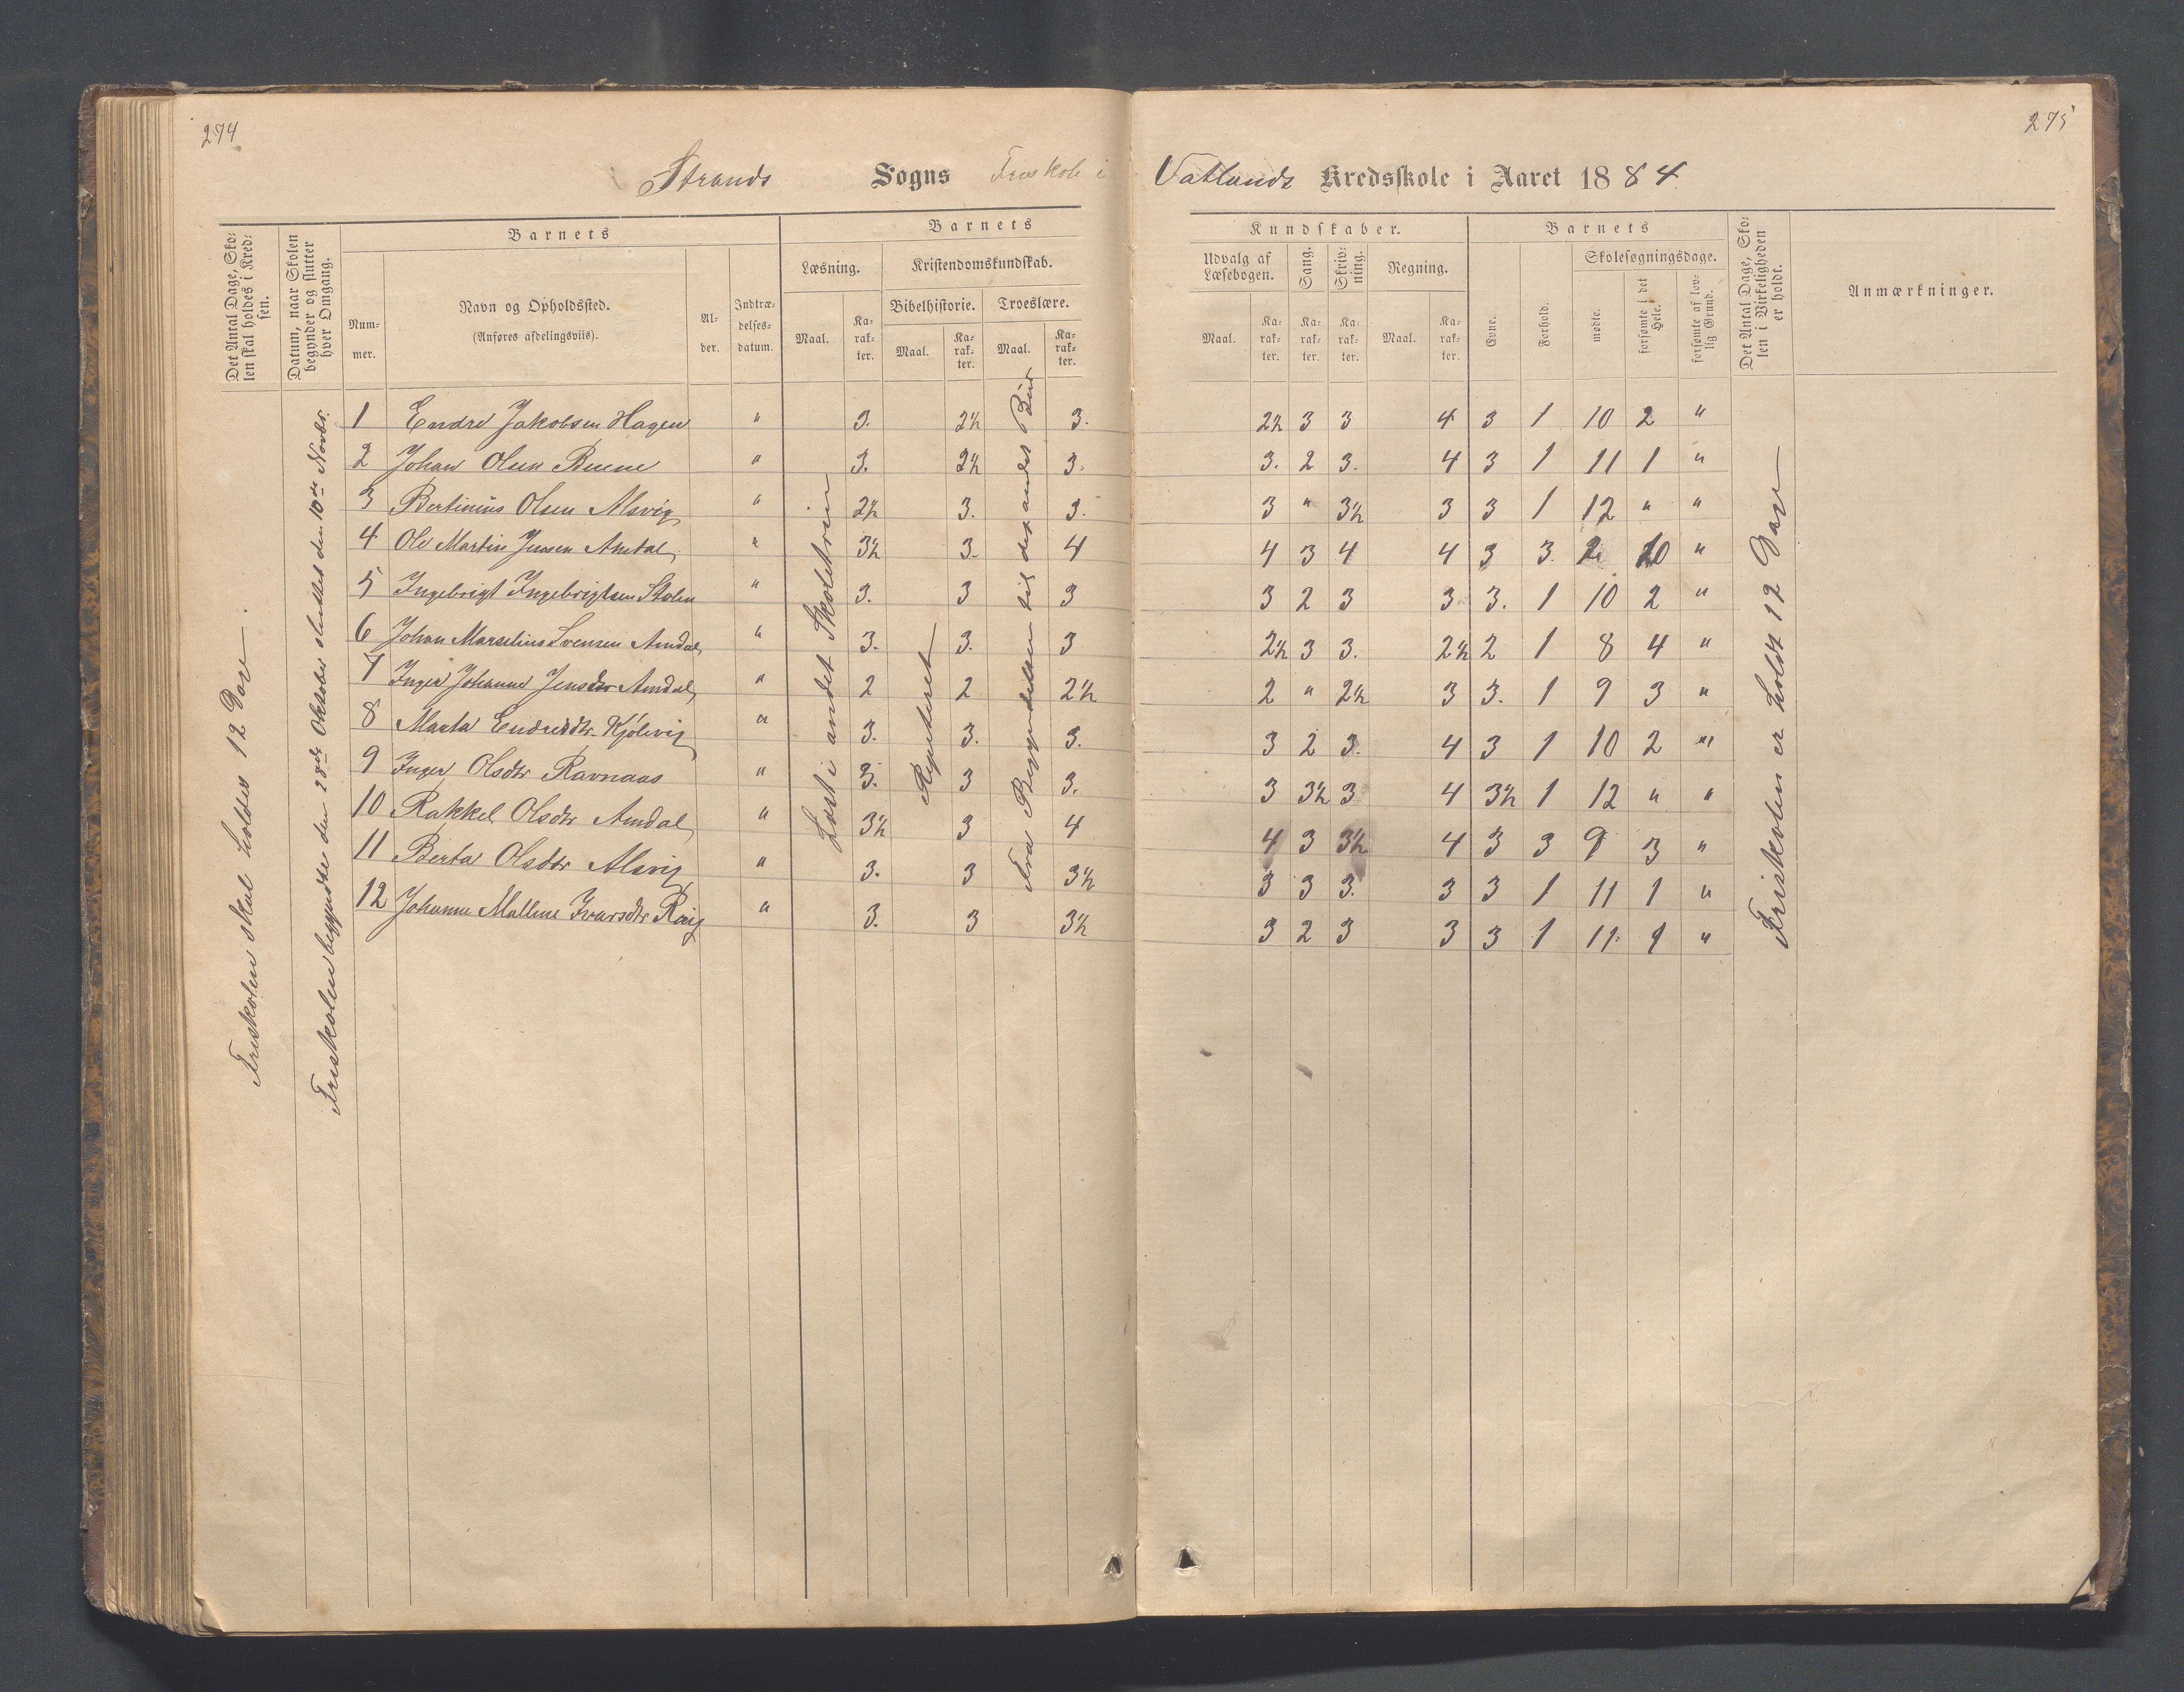 274
275
Strands Sogns Friskole i Vatlands Kredsskole i Aaret 1884
Det Antal Dage, Sko-
len skal holdes i Kred-
sen.
Datum, naar Skolen
begynder og slutter
hver Omgang.
Barnets
Num-
mer.
Navn og Opholdssted.
(Anføres afdelingsviis).
Al-
der.
Indtræ-
delses-
datum.
Barnets
Læsning.
Kristendomskundskab.
Bibelhistorie.
Troeslære.
Maal.
Ka-
rak-
ter.
Maal.
Ka-
rak-
ter.
Maal.
Ka-
rak-
ter.
Kundskaber.
Udvalg af
Læsebogen.
Sang.
Skriv-
ning.
Regning.
Maal.
Ka-
rak-
ter.
Ka-
rak-
ter.
Ka-
rak-
ter.
Maal.
Ka-
rak-
ter.
Barnets
Evne.
Forhold.
Skolesøgningsdage.
mødte.
forsømte i det
Hele.
forsømte af lov-
lig Grund.
Det Antal Dage, Sko-
len i Virkeligheden
er holdt.
Anmærkninger.
Friskolen skal holdes 12 Dage.
Friskolen begyndte den 28de Oktober sluttet den 10de Novbr.
Læst i andet Skoletrin
Repeteret
Fra Begyndelsen til det andet
Friskolen er holdt 12 Dage
1 Endre Jakobsen Hagen " 3. 2½ 3. 2½ 3 3 4 3 1 10 2 "
2 Johan Olsen " 3. 2½ 3. 3. 2 3. 4 3 1 11 1 "
3 Bertinius Olsen Alsvig " 2½ 3. 3. 3 " 3½ 3 3 1 12 " "
4 Ole Martin Jensen Amdal " 3½ 3. 4 4 3 4 4 3 3. 2 10 "
5 Ingebrigt Ingebrigtsen Stolen " 3. 3 3 3 2 3 3 3. 1 10 2 "
6 Johan Marselius Svensen Amdal " 3. 3. 3 2½ 3 3. 2½ 2 1 8 4 "
7 Inger Johanne Jensdtr Amdal " 2 2 2½ 2 " 2½ 3 3. 1 9 3 "
8 Marta Endresdtr. Kjølevig " 3. 3. 3. 3 2 3. 4 3 1 10 2 "
9 Inger Olsdtr Ravnaas " 3. 3 3. 3 3½ 3 4 3½ 1 12 " "
10 Rakkel Olsdtr Amdal " 3½ 3 4 4 3 3½ 4 3 3 9 3 "
11 Berta Olsdtr Alsvig " 3. 3 3½ 3 3 3. 3 3 1 11 1 "
12 Johanne Malline Ivarsdtr " 3. 3 3½ 3 2 3 3 3 1 11 1 "